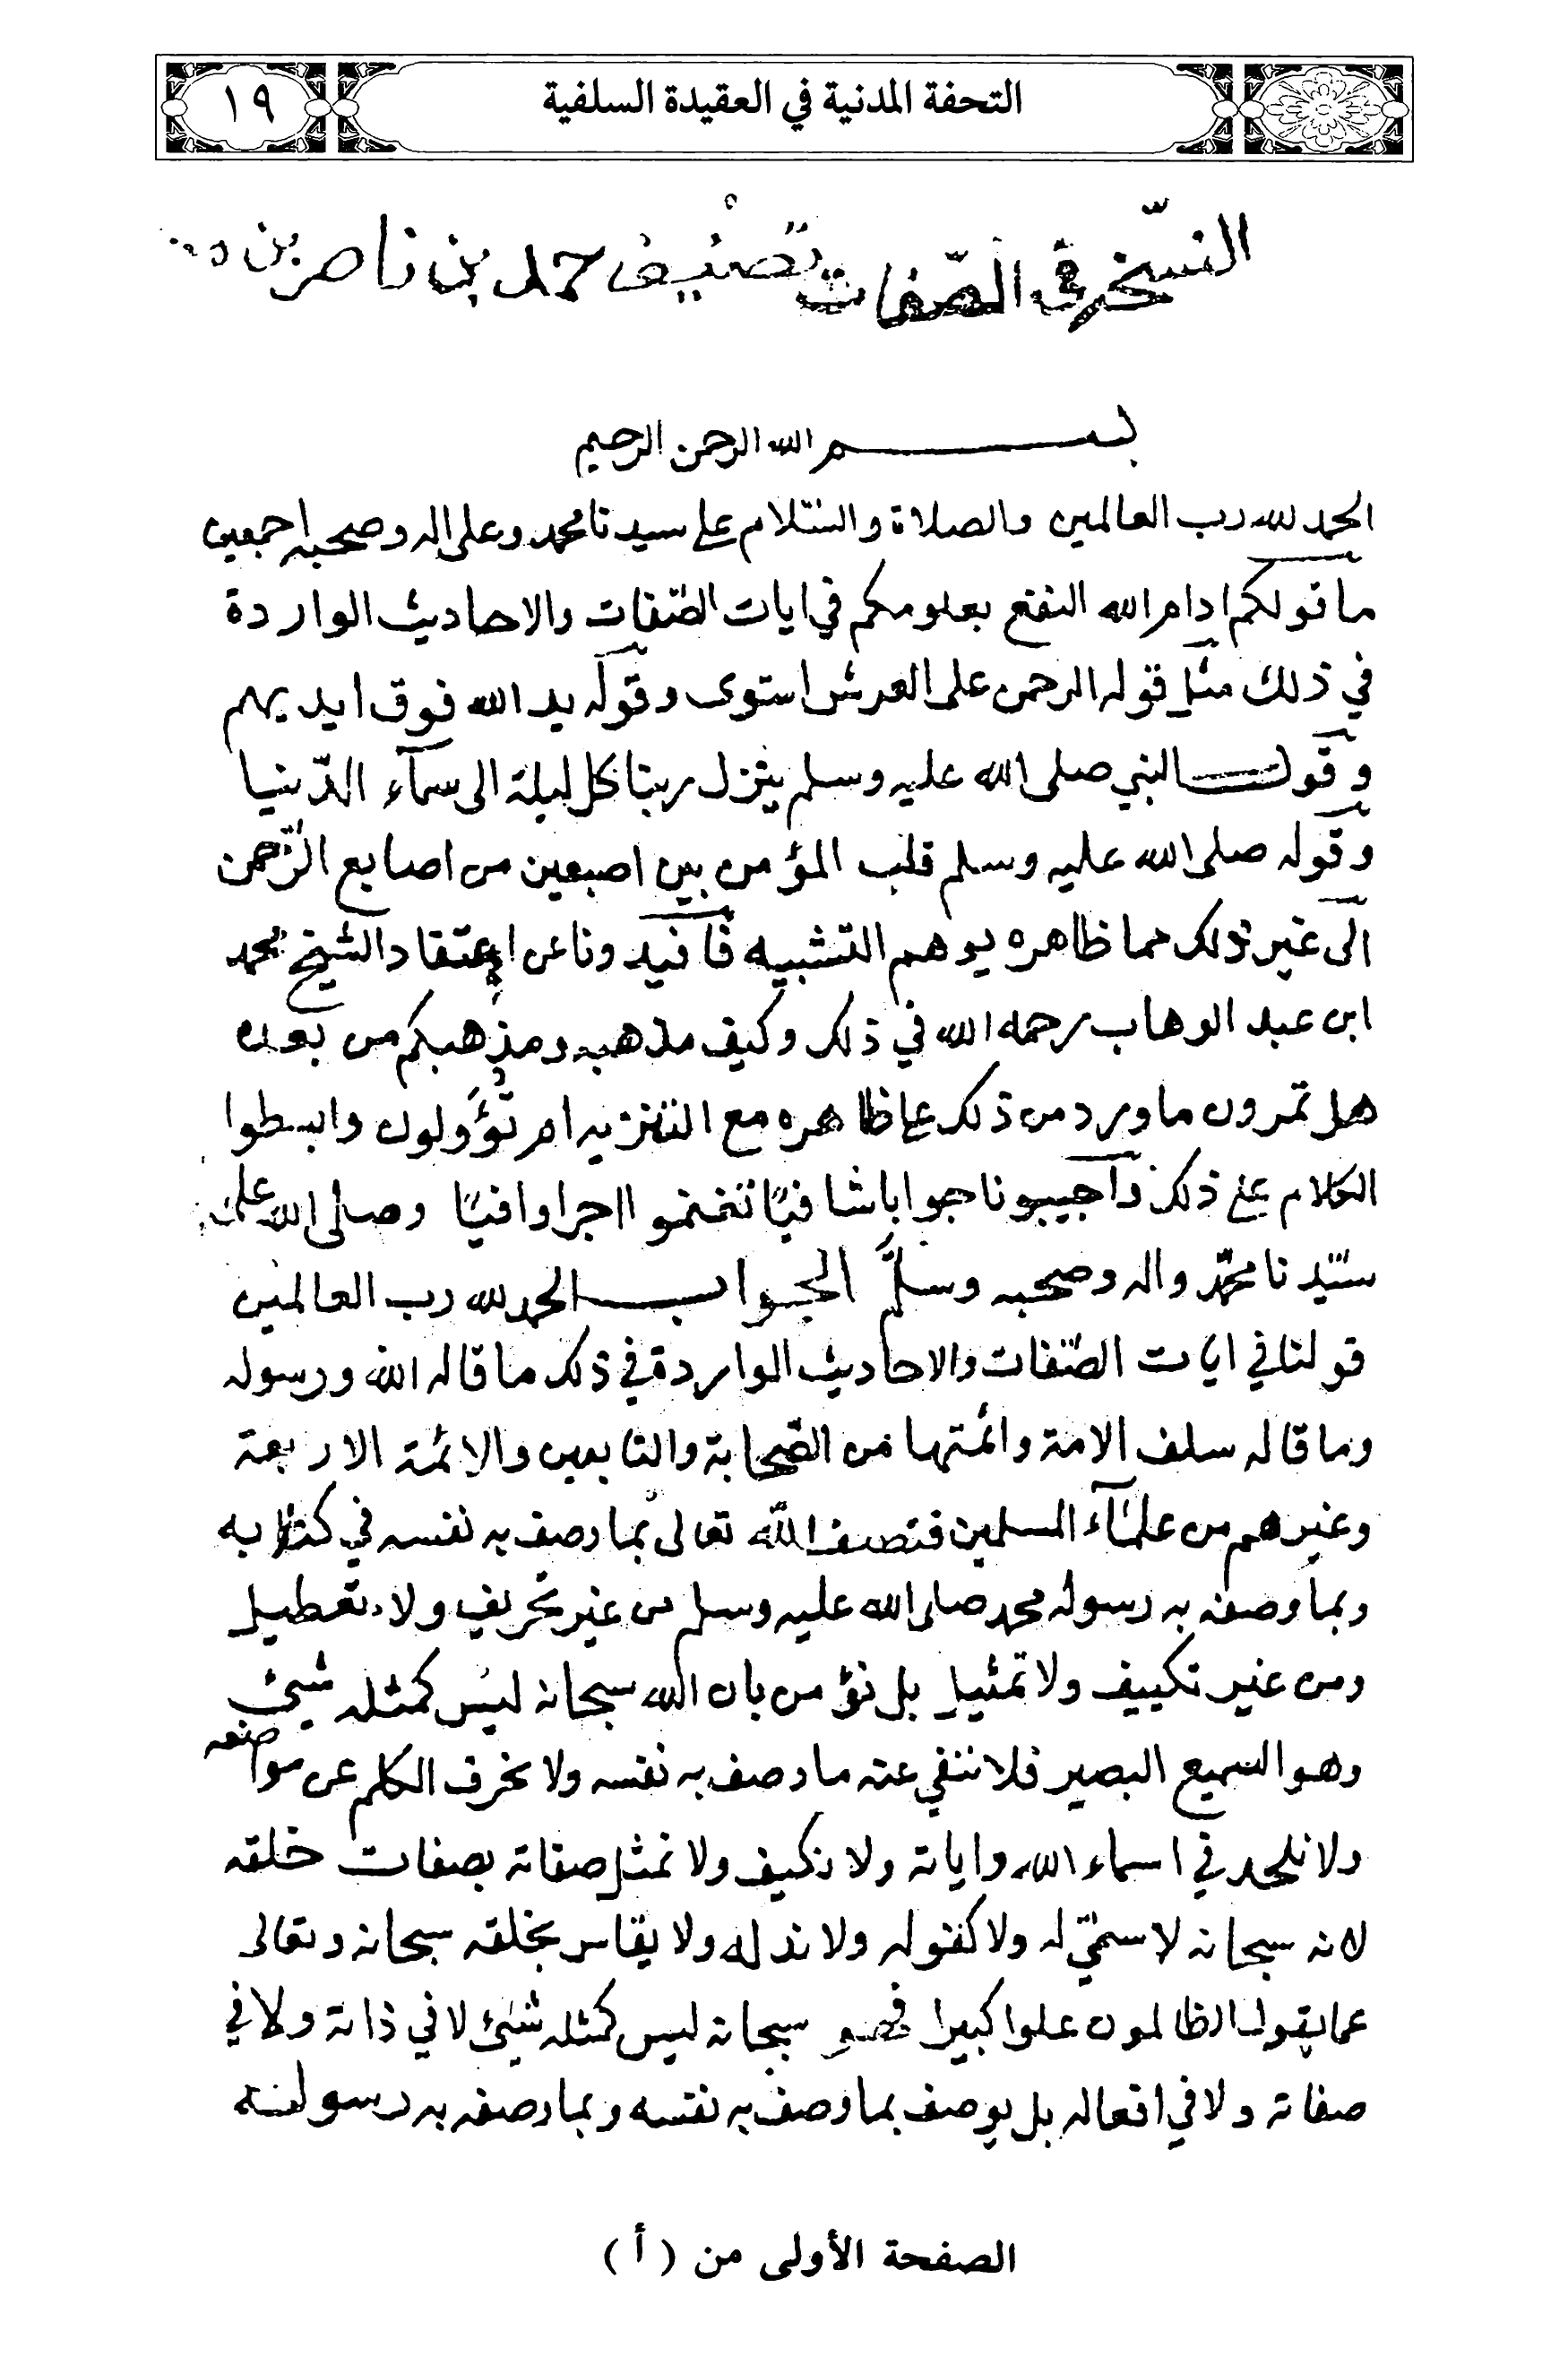 التحفة المدنية في العقيدة السلفية
١٩
النسخه في الصفات تصنيف حمد بن ناصر بن
بسم الله الرحمن الرحيم
الحمد لله رب العالمين والصلاة والسّلام على سيدنا محمد وعلى اله وصحبه اجمعين
ما قولكم ادام الله النفع بعلومكم في ايات الصّفات والاحاديث الواردة
في ذلك مثل قوله الرحمن على العرش استوى وقوله يد الله فوق ايديهم
وقول النبي صلى الله عليه وسلم ينزل ربنا كل ليلة الى سمآء الدّنيا
وقوله صلى الله عليه وسلم قلب المؤمن بين اصبعين من اصابع الرّحمن
الى غير ذلك مما ظاهره يوهم التشبيه فآفيدونا عن اعتقاد الشيخ محمد
ابن عبد الوهاب رحمه الله في ذلك وكيف مذهبه ومذهبكم من بعده
هل تمرون ما ورد من ذلك على ظاهره مع التنزيه ام تؤَولون وابسطوا
الكلام على ذلك وآجيبونا جوابا شافيًا تغنموا اجرا وافيًا وصلى الله على
سيّدنا محمّد واله وصحبه وسلّم الجواب الحمد لله رب العالمين
قولنا في ايات الصّفات والاحاديث الواردة في ذلك ما قاله الله ورسوله
وما قاله سلف الامة وائمتها من الصّحابة والتابعين والائمة الاربعة
وغيرهم من علمآء المسلمين فنصف اللّه تعالى بما وصف به نفسه في كتابه
وبما وصفه به رسوله محمد صلى الله عليه وسلم من غير تحريف ولا تعطيل
ومن غير تكييف ولا تمثيل بل نؤمن بان الله سبحانه ليس كمثله شيئ
وهو السميع البصير فلا ننفي عنه ما وصف به نفسه ولا نحرف الكلم عن مواضعه
ولا نلحد في اسماء الله واياته ولا نكيف ولا نمثل صفاته بصفات خلقه
لانه سبحانه لا سميّ له ولا كفو له ولا ند له ولا يقاس بخلقه سبحانه وتعالى
عما يقول الظالمون علوا كبيرا فهو سبحانه ليس كمثله شيئ لا في ذاته ولا في
صفاته ولا في افعاله بل يوصف بما وصف به نفسه وبما وصفه به رسوله
الصفحة الأولى من ( أ )